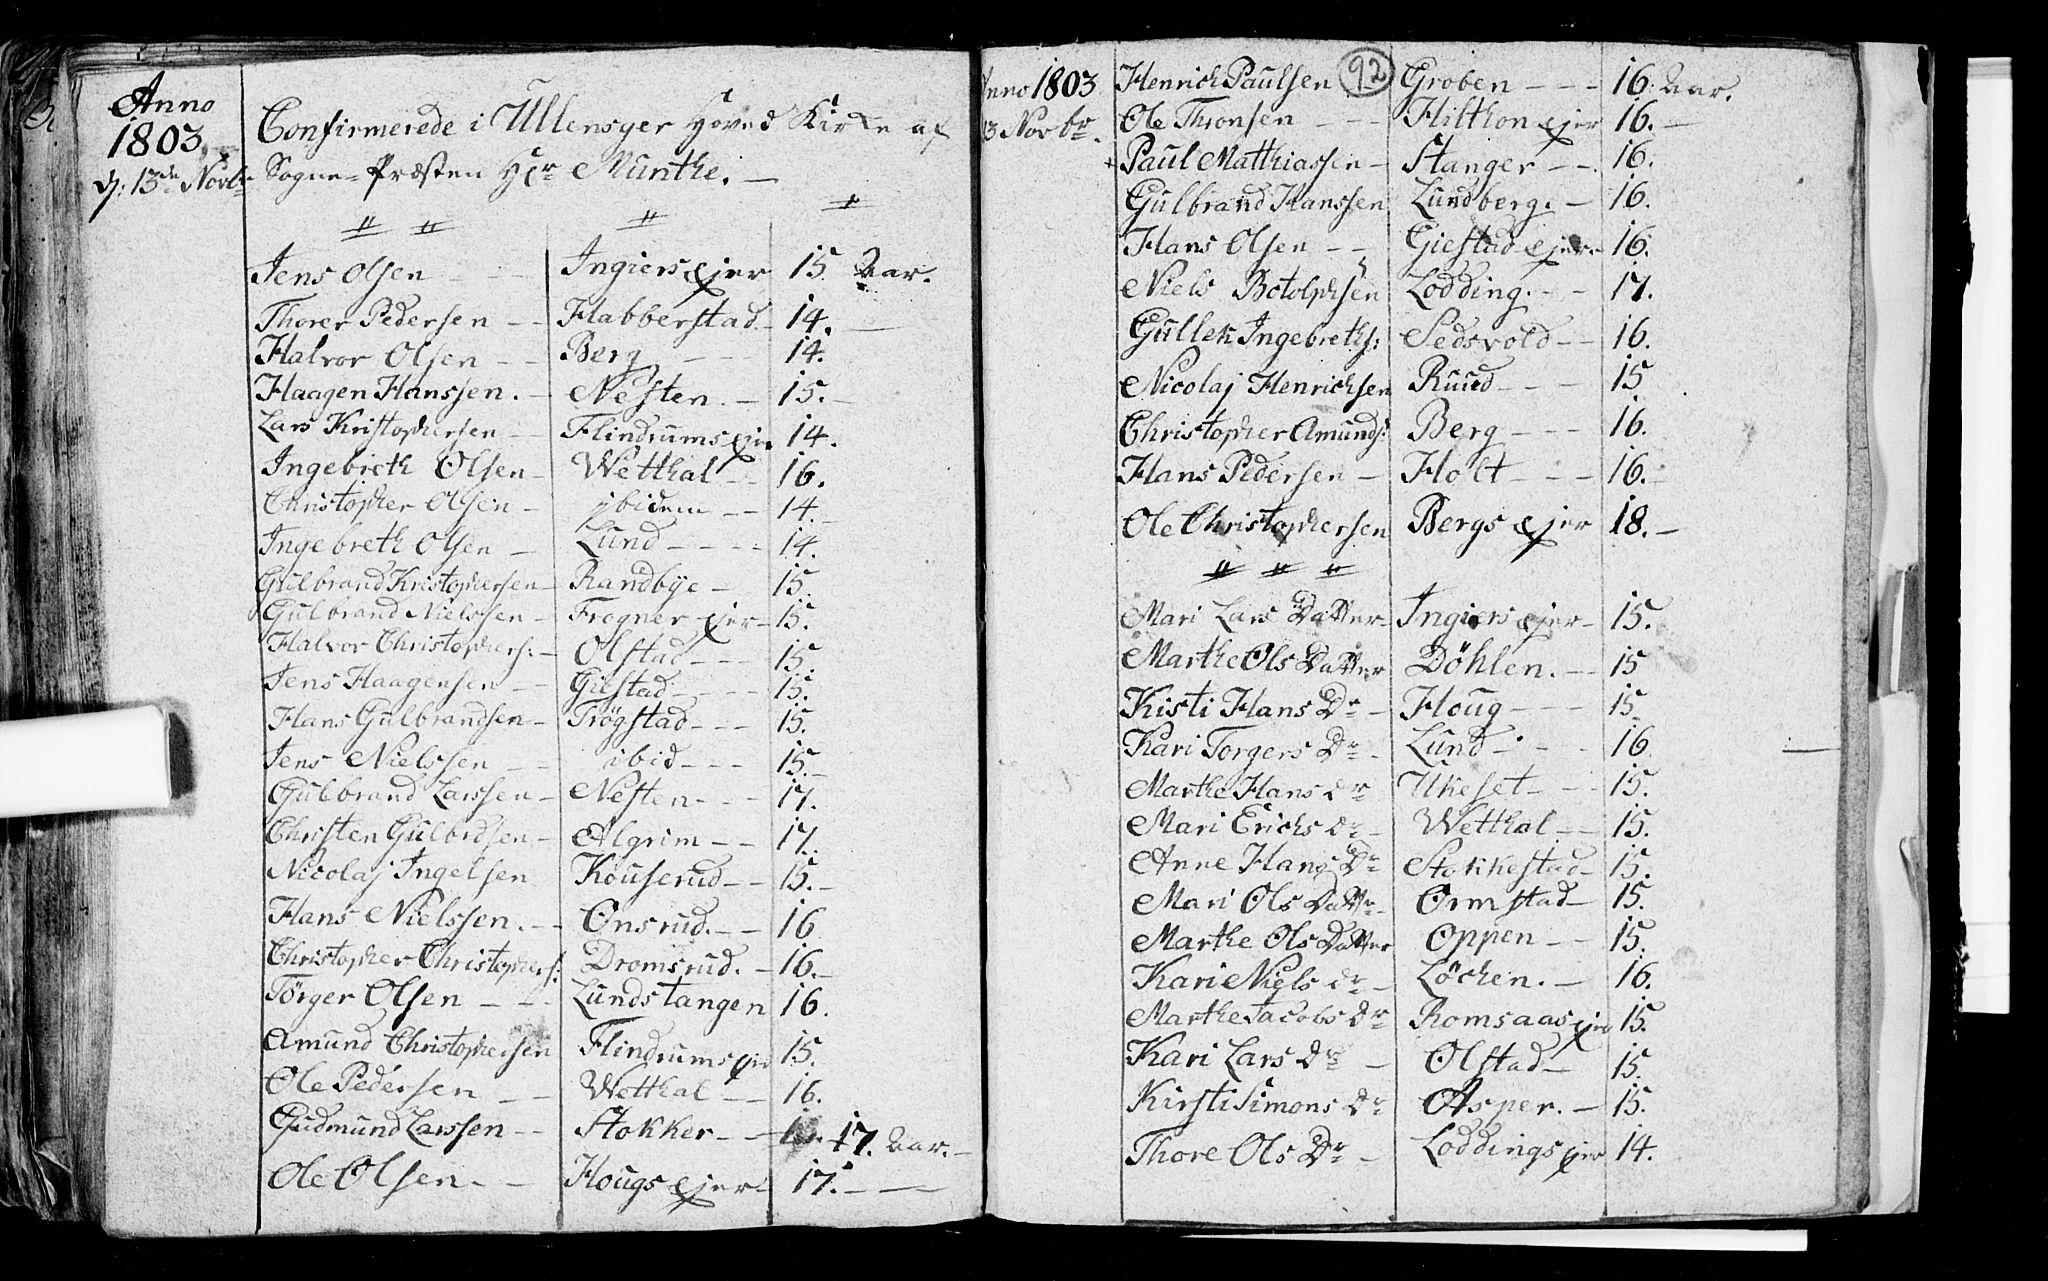 Anno
1803.
d: 13de Novbr
Confirmerede i Ullensger Hoved Kirke af
Sogne-Præsten Hr Munthe. —
Jens Olsen — Ingiers ejer 15 Aar.
Thorer Pedersen — Habberstad — 14. —
Halvor Olsen — Berg — 14.
Haagen Hanssen. — Nesten. — 15. —
Lars Kristophersen — Flindrums ejer 14.
Ingebreth Olsen — Wetthal — 16.
Christopher Olsen — ibidem — 14. —
Ingebreth Olsen — Lund — 14.
Gulbrand Kristophersen — Randbye — 15.
Gulbrand Nielssen — Frogner ejer — 15.
Halvor Christophers: — Olstad — 15.
Jens Haagensen — Giestad — 15.
Hans Gulbrandsen — Trögstad — 15.
Jens Nielssen — ibid — 15. —
Gulbrand Larssen — Nesten — 17.
Christen Gulbrdsen — Algrim — 17.
Nicolaj Ingelsen Kouserud — 15. —
Hans Nielssen. — Onsrud. — 16
Christopher Christophers: Dromsrud. — 16. —
Törger Olsen — Lundstangen 16.
Amund Christophersen Flindrums ejer 15.
Ole Pedersen — Wetthal — 16.
Gudmund Larssen — Stokker — 17. Aar. —
Ole Olsen. — Hougs ejer — 17. —
Anno 1803
13 Novbr.
92
Henrich Paulsen Groben — 16: Aar.
Ole Thronsen — Hilthon ejer 16. —
+ Paul Matthiassen — Stanger — 16.
Gulbrand Hanssen Lundberg. — 16.
Hans Olsen — Giestad ejer — 16.
Niels Botolphsen Lodding. — 17.
Gullek Ingebreths: Sedsvold — 16.
Nicolaj Henrichsen Ruud — 15
Christopher Amunds: Berg — 16.
Hans Pedersen — Holt — 16. —
Ole Christophersen Bergs ejer 18. —
Mari Lars Datter — Ingiers ejer — 15.
Marthe Ols Datter Döhlen. — 15
Kisti Hans Dr — Houg — 15
Kari Torgers Dr — Lund — 16
Marthe Hans dr Ukeset — 15.
Mari Erichs dr — Wetthal — 15.
Anne Hans Dr Stokkestad — 15.
Mari Ols Dattr — Ormstad — 15.
Marthe Ols Datter Oppen — 15.
Kari Niels dr — Löchen. — 16.
Marthe Jacobs dr Romsaas ejer 15.
Kari Lars Dr — Olstad — 15.
Kirsti Simons Dr Asper. — 15.
Thore Ols Dr — Loddings ejer 14.